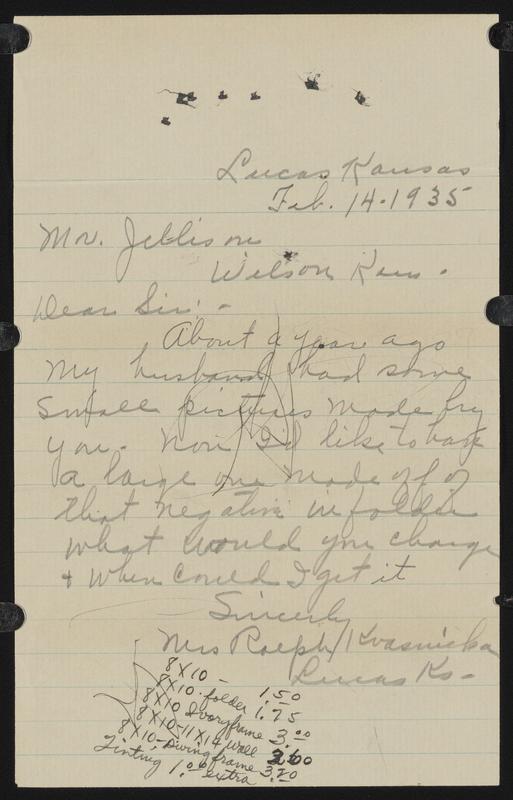 Lucas Kansas
Feb. 14-1935
Mr. Jellison
Wilson Kans.
Dear Sir: -
About a year ago
my husband had some
small pictures made by
you. Now I'd like to have
a large one made off of
that negative in folder
what would you charge
+ when could I get it
Sincerely
Mrs Ralph Kvasnicka
Lucas Ks-
8X10 - 1.50
8X10 - folder 1.75
8X10 Ivory frame 3.00
8X10-11X14 wall
8X10- Swing frame 3.20
Tinting 1.00 extra